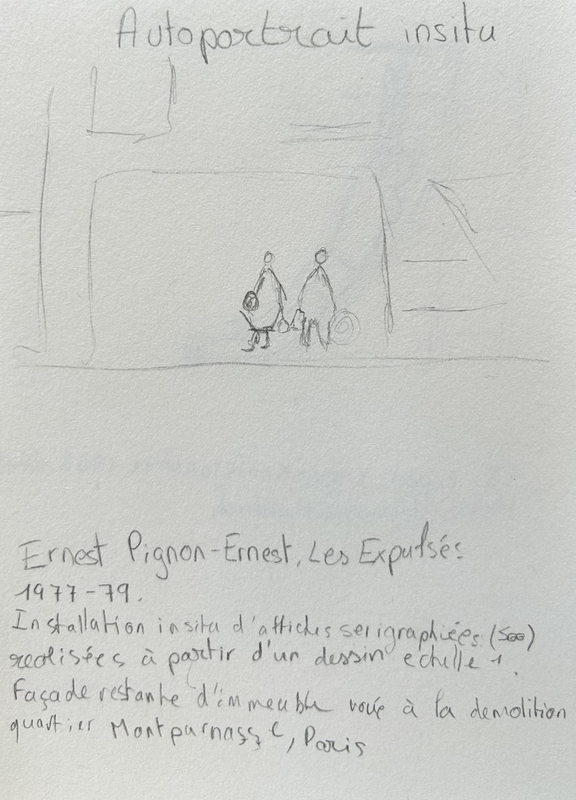 Autoportrait insitu
Ernest Pignon-Ernest, Les Expulsés
1977-79.
Installation insitu d'affiches serigraphiées (500)
realisées à partir d'un dessin echelle 1.
Façade restante d'immeuble vouée à la demolition
quartier Montparnasse, Paris